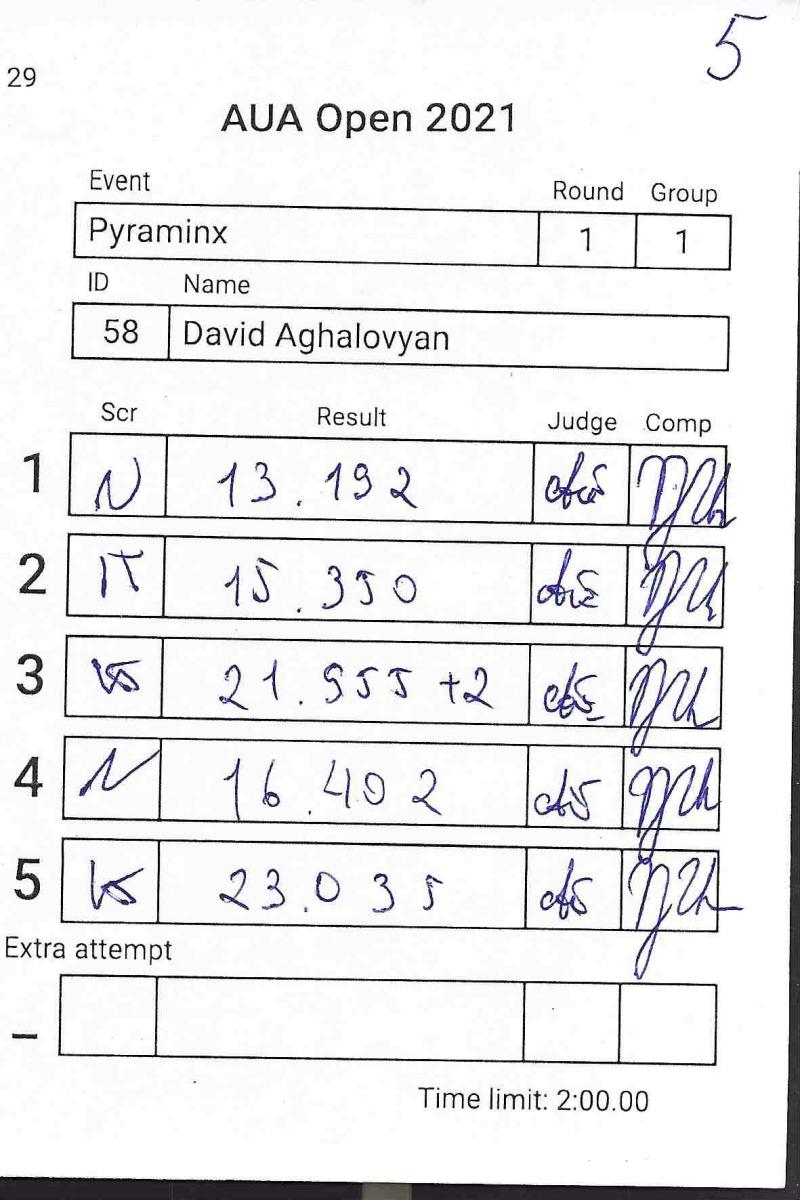 5
29
AUA Open 2021
Event Round Group
Pyraminx 1 1
ID Name
58 David Aghalovyan
Scr Result Judge Comp
1 N 13.192
2 15.350
3 21.955 +2
4 N 16.402
5 23.035
Extra attempt
–
Time limit: 2:00.00